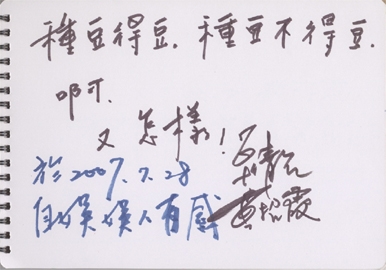 種豆得豆. 種豆不得豆.
叩可.
又怎樣!
於2007.7.28
自娛娛人有感
黃招霞